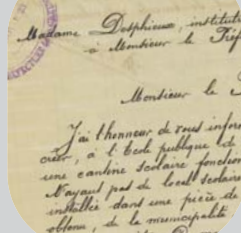 Madame Desphieux, institut
à Monsieur le Préf
Monsieur le
J'ai l'honneur de vous infor
créer, à l'Ecole publique de
une cantine scolaire fonction
N'ayant pas de local scolaire
installée dans une pièce de
obtenu, de la municipalité